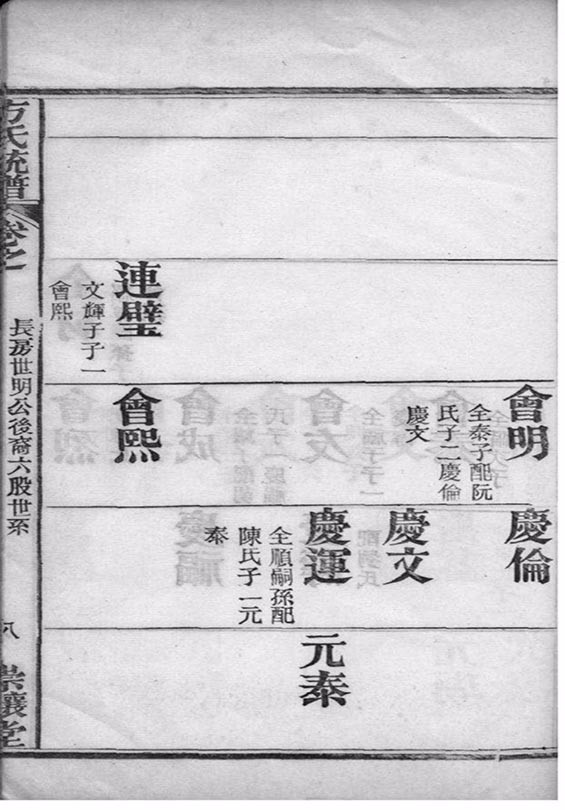 連璧
文輝子子一
會熙
會明
全泰子配阮
氏子二慶倫
慶文
會熙
慶倫
慶文
慶運
全順嗣孫配
陳氏子一元
泰
元泰
方氏統譜
卷之
長房世明公後裔六股世系
八
崇讓堂